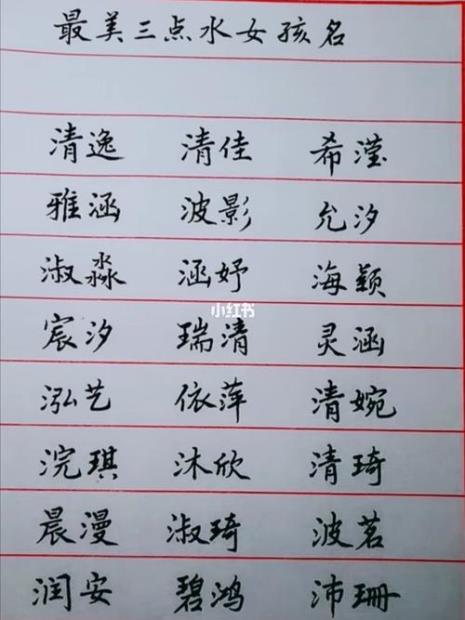 最美三点水女孩名
清逸 清佳 希滢
雅涵 波影 允汐
淑淼 涵妤 海颖
小红书
宸汐 瑞清 灵涵
泓艺 依萍 清婉
浣琪 沐欣 清琦
晨漫 淑琦 波茗
润安 碧鸿 沛珊